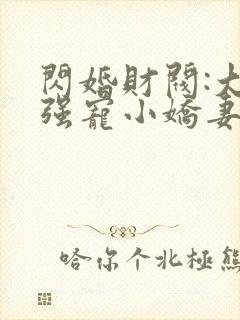 閃婚財閥:大
强寵小嬌妻
哈你个北極熊